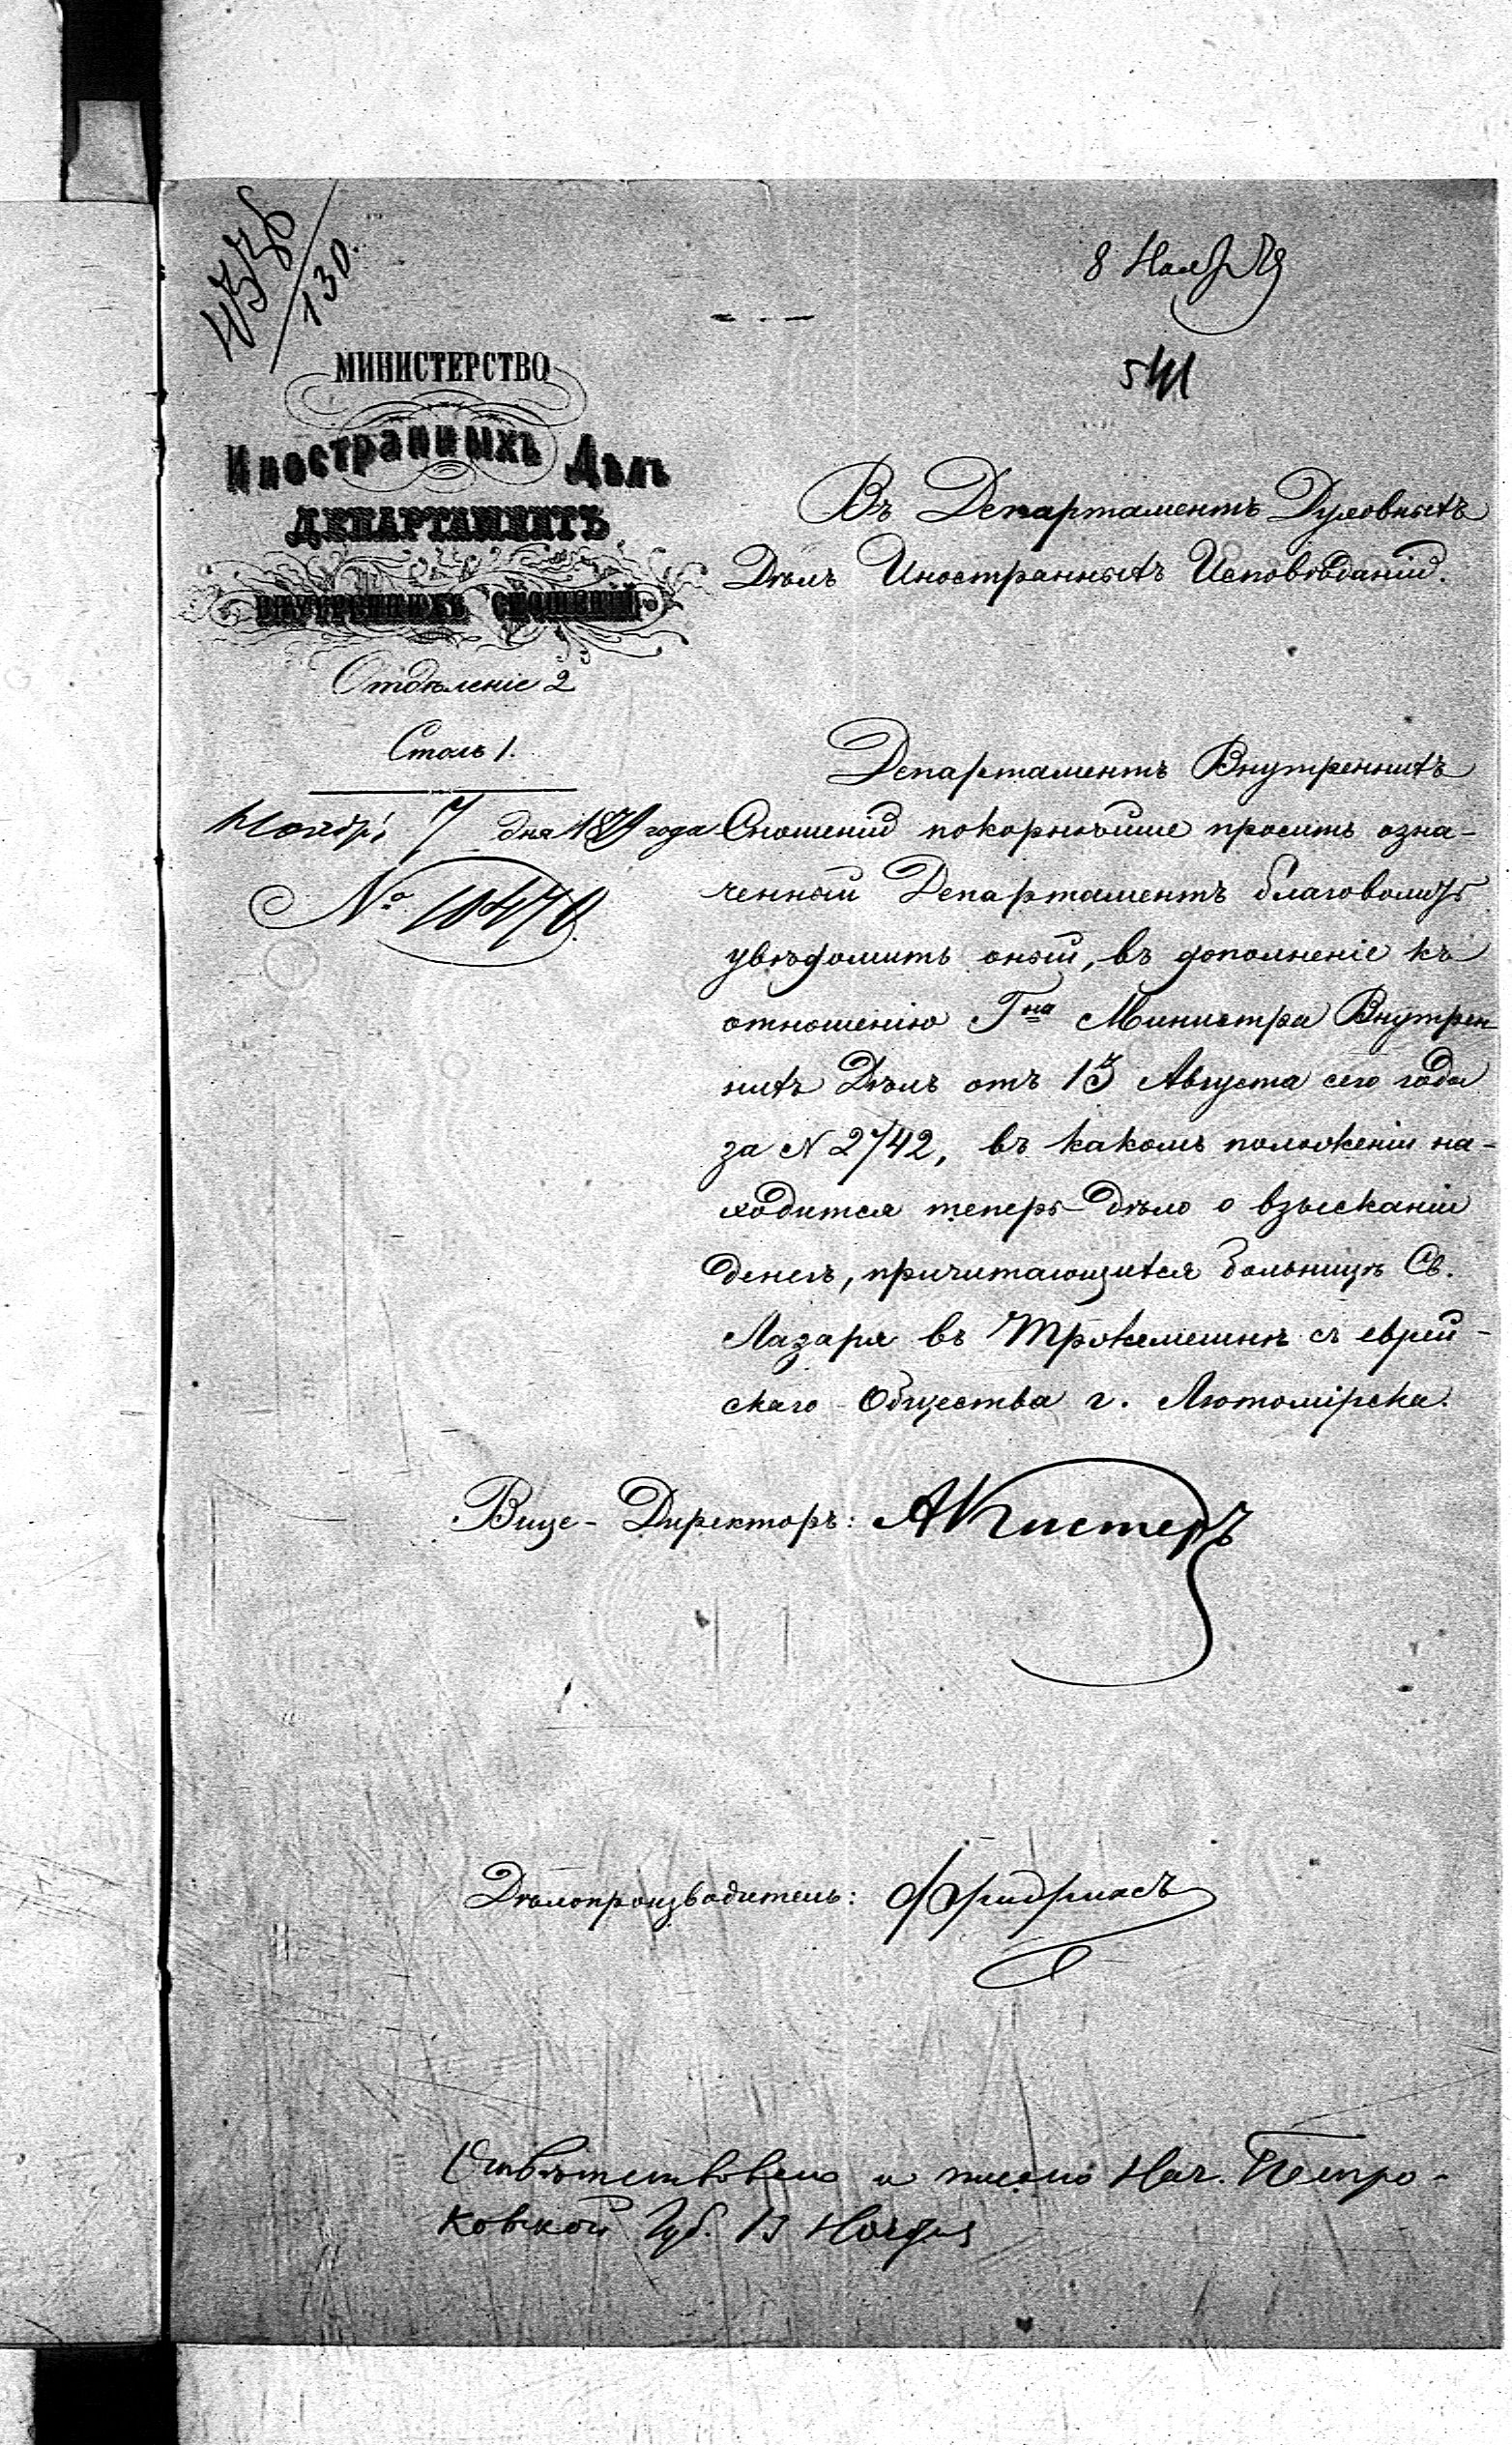 130.
8 Ноября
541
МИНИСТЕРСТВО
Иностранныхъ Дѣлъ
ДЕПАРТАМЕНТЪ
ВНУТРЕННИХЪ СНОШЕНІЙ
Отдѣленіе 2
Столъ 1.
Ноября 7 дня 1871 года
№ 10470.
Въ Департаментъ Духовныхъ
Дѣлъ Иностранныхъ Исповѣданій.
Департаментъ Внутреннихъ
Сношеній покорнѣйше проситъ озна-
ченный Департаментъ благоволить
увѣдомить оный, въ дополненіе къ
отношенію Гна Министра Внутрен
нихъ Дѣлъ отъ 13 Августа сего года
за N 2742, въ какомъ положеніи на-
ходится теперь дѣло о взысканіи
денегъ, причитающихся больницѣ Св.
Лазаря въ Тржемешнѣ съ еврей-
скаго Общества г. Лютомірска.
Вице-Директоръ: АКистеръ
Дѣлопроизводитель: Фридрихсъ
и писано Нач. Петро-
ковской Губ. 13 Ноября